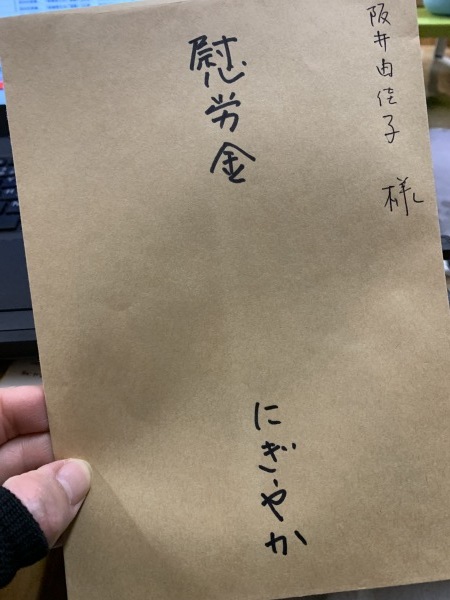 阪井由佳子 様
慰労金
にぎやか